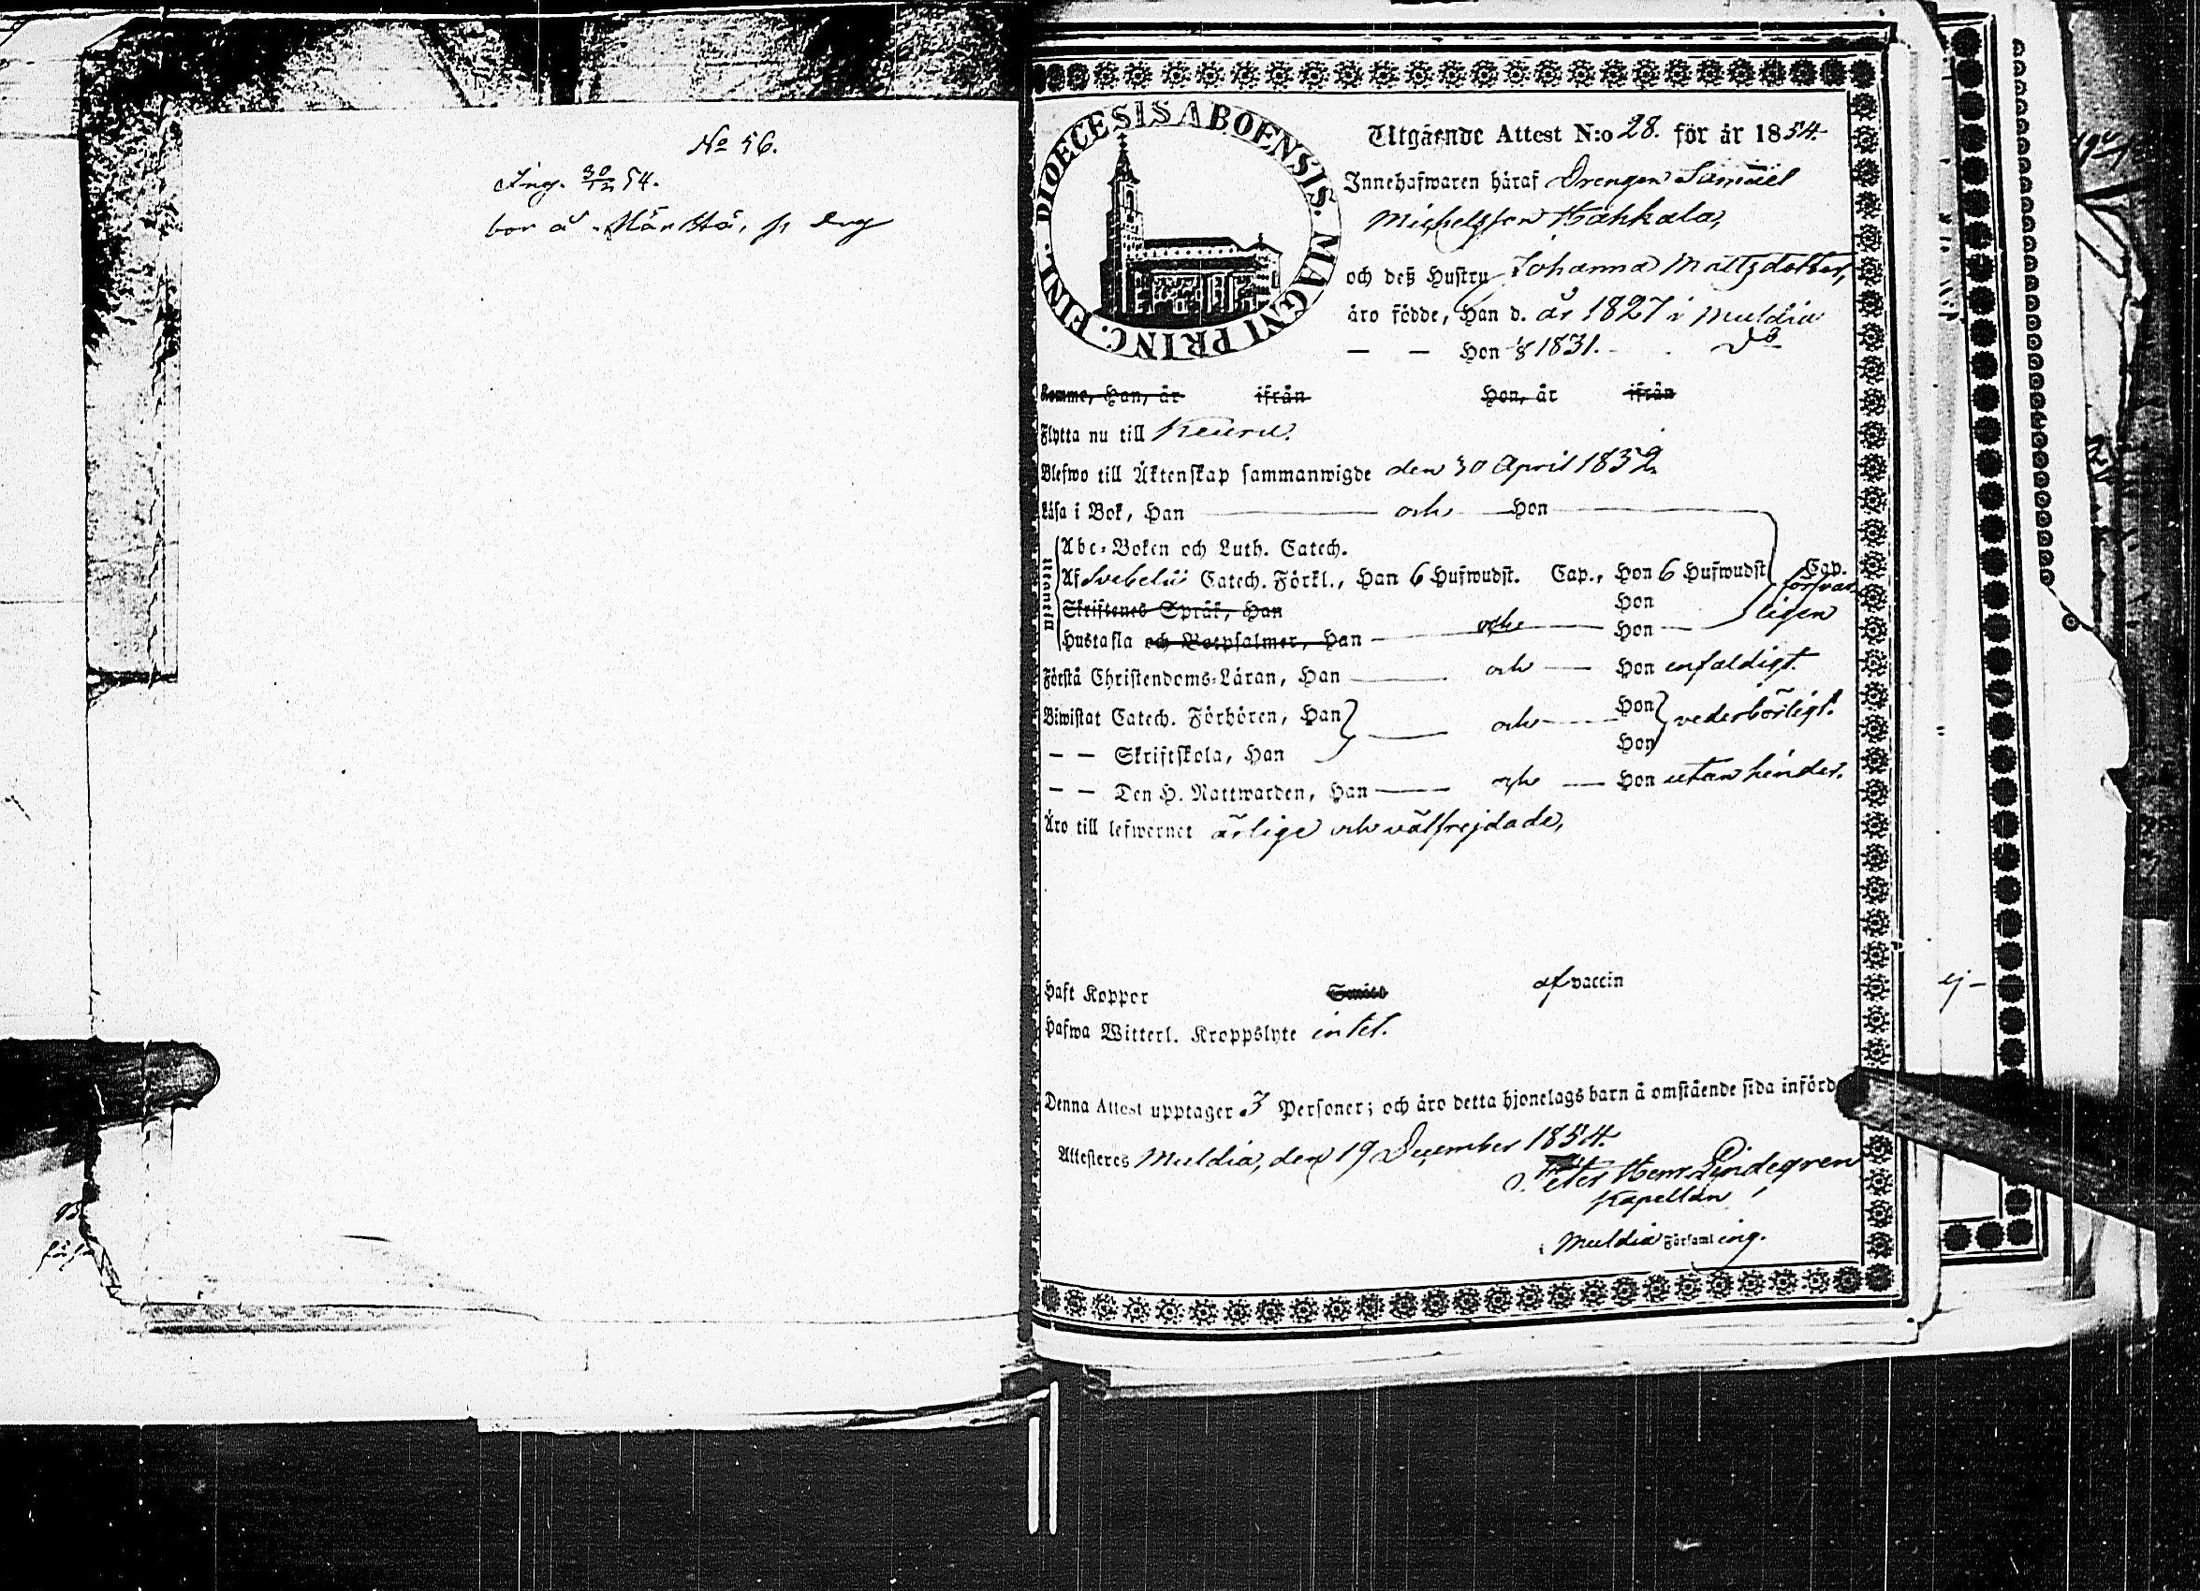 No 56.
Ing. 30/12 54.
bor å
DIOECESIS ABOENSIS. MAGNI PRINC. FINL.
Utgående Attest N:o 28. för år 1854.
Innehafwaren häraf Drengen Samuel
Michelsson Hahkala,
och deß Hustru Johanna Mattsdotter,
äro födde, Han d. år 1827 i Muldia
— — Hon 1831. do
Komme, Han, år ifrån Hon, år ifrån
Flytta nu till Keuru.
Blefwo till Äktenskap sammanwigde den 30 April 1852
Läsa i Bok, Han — och — Hon —
Utantill
Abc-Boken och Luth. Catech.
Af Svebelii Catech. Förkl., Han 6 Hufwudst. Cap., Hon 6 Hufwudst. Cap.
försvar
Skriftenes Språk, Han Hon
ligen
Hustafla och Botpsalmer, Han — och — Hon —
Förstå Christendoms-Läran, Han — och — Hon enfaldigt.
Biwistat Catech. Förhören, Han — och — Hon vederbörligt.
— — Skriftskola, Han Hon
— — Den H. Nattwarden, Han — och — Hon utan hinder.
Äro till lefwernet ärlige och välfrejdade,
Haft Koppor af vaccin
Hafwa Witterl. Kroppslyte intet.
Denna Attest upptager 3 Personer; och äro detta hjonelags barn å omstående sida införd
Attesteres Muldia, den 19 December 1854.
Peter Herm Lindegren
Kapellan
i Muldia Församling.
ej —